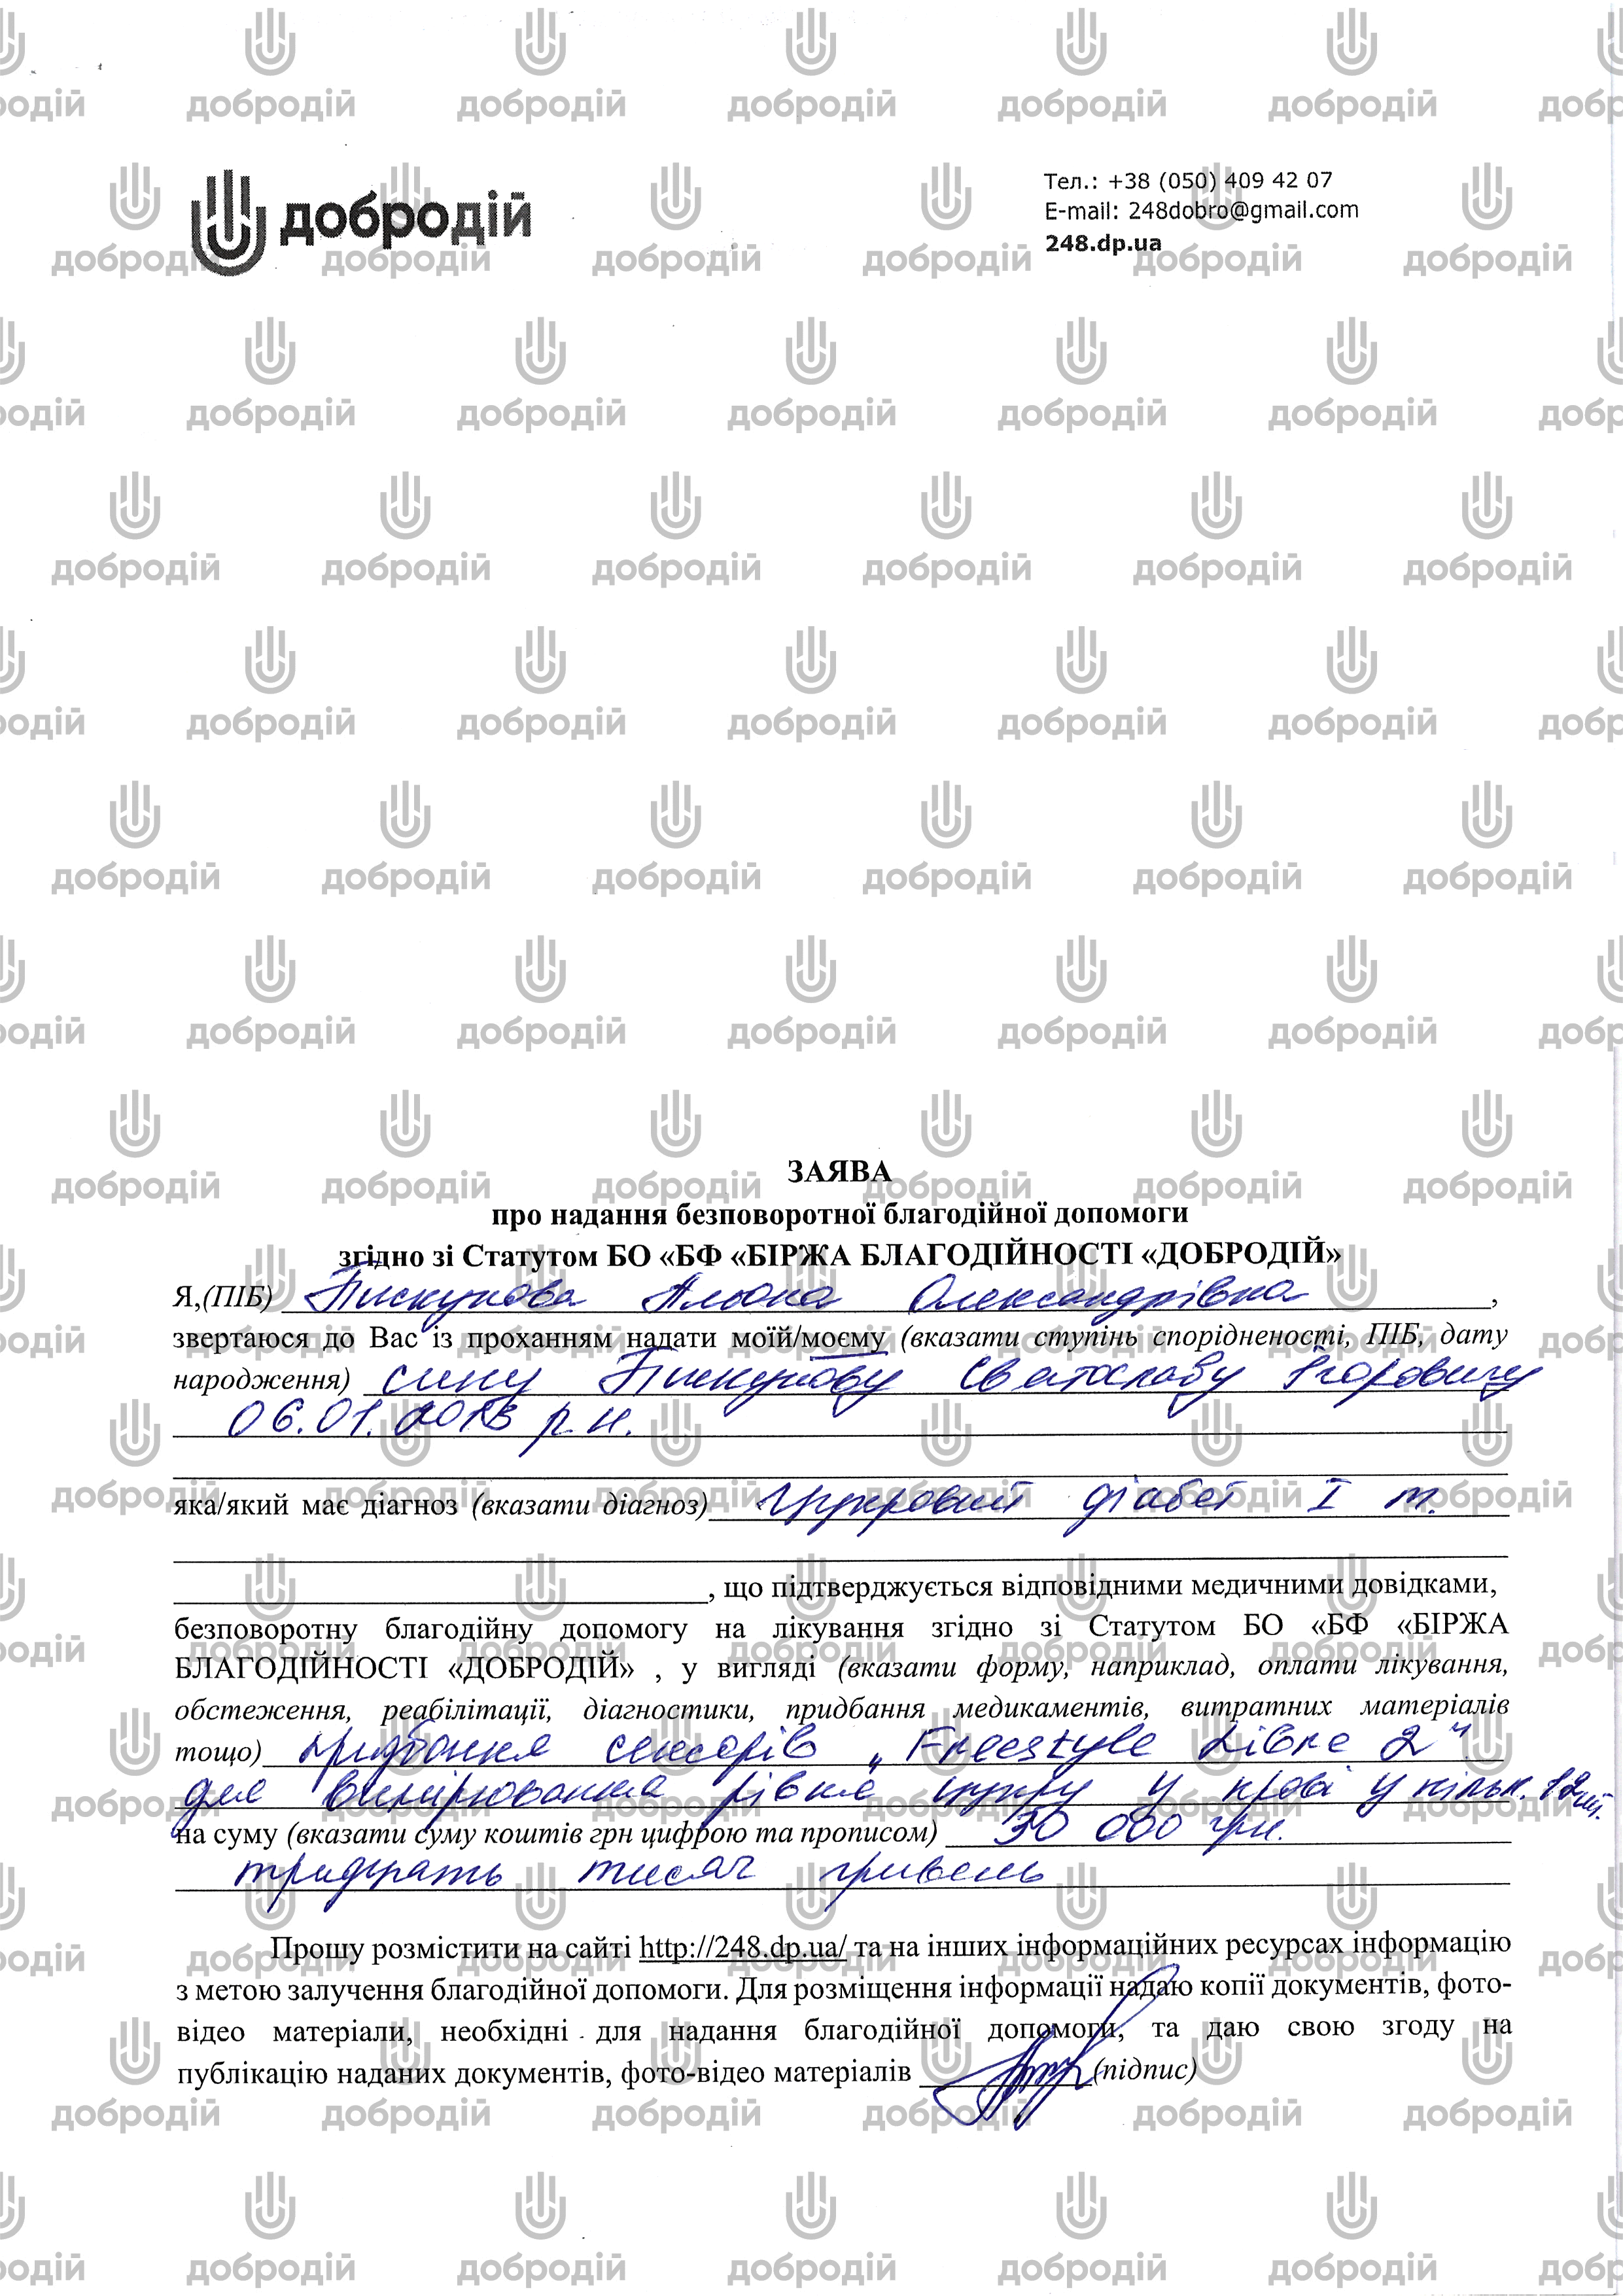 добродій
Тел.: +38 (050) 409 42 07
E-mail: 248dobro@gmail.com
248.dp.ua
ЗАЯВА
про надання безповоротної благодійної допомоги
згідно зі Статутом БО «БФ «БІРЖА БЛАГОДІЙНОСТІ «ДОБРОДІЙ»
Я,(ПІБ) Пискунова Альона Олександрівна,
звертаюся до Вас із проханням надати моїй/моєму (вказати ступінь спорідненості, ПІБ, дату
народження) сину Пискунову Святославу Ігоровичу
06.01. р.н.
яка/який має діагноз (вказати діагноз) Цукровий діабет I т.
, що підтверджується відповідними медичними довідками,
безповоротну благодійну допомогу на лікування згідно зі Статутом БО «БФ «БІРЖА
БЛАГОДІЙНОСТІ «ДОБРОДІЙ» , у вигляді (вказати форму, наприклад, оплати лікування,
обстеження, реабілітації, діагностики, придбання медикаментів, витратних матеріалів
тощо) придбання сенсорів „Freestyle Libre 2"
для вимірювання рівня цукру у крові у кільк. 12шт.
на суму (вказати суму коштів грн цифрою та прописом) 30 000 грн.
тридцять тисяч гривень
Прошу розмістити на сайті http://248.dp.ua/ та на інших інформаційних ресурсах інформацію
з метою залучення благодійної допомоги. Для розміщення інформації надаю копії документів, фото-
відео матеріали, необхідні для надання благодійної допомоги, та даю свою згоду на
публікацію наданих документів, фото-відео матеріалів (підпис)